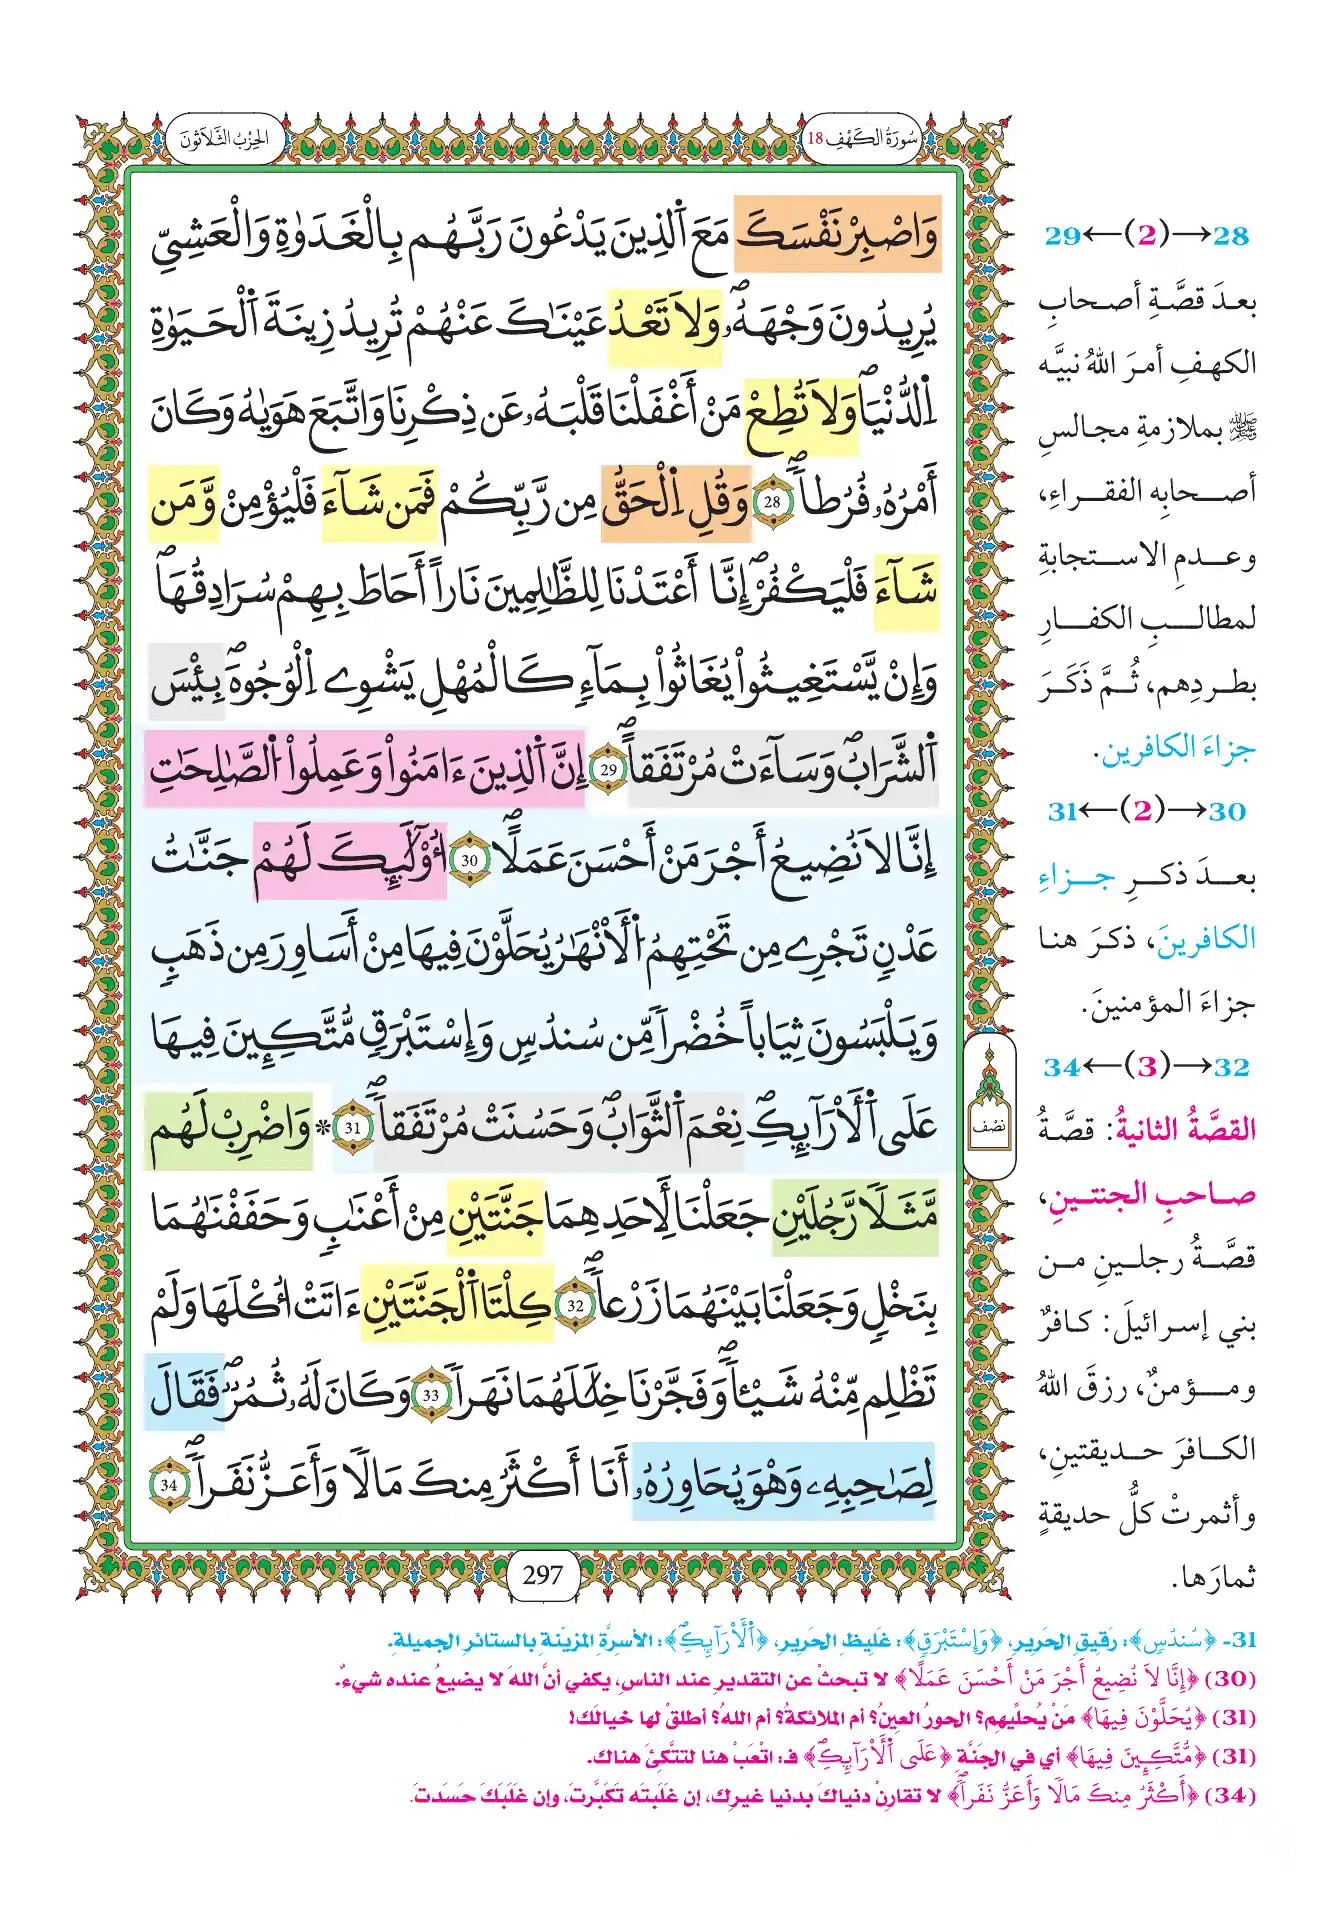 سُورَةُ الكَهْفِ 18
الحِزْبُ الثَّلَاثُونَ
وَاصْبِرْ نَفْسَكَ مَعَ اَ۬لذِينَ يَدْعُونَ رَبَّهُم بِالْغَدَوٰةِ وَالْعَشِيِّ
يُرِيدُونَ وَجْهَهُۥۖ وَلَا تَعْدُ عَيْنَٰكَ عَنْهُمْ تُرِيدُ زِينَةَ اَ۬لْحَيَوٰةِ
اِ۬لدُّنْيَاۖ وَلَا تُطِعْ مَنْ أَغْفَلْنَا قَلْبَهُۥ عَن ذِكْرِنَا وَاتَّبَعَ هَوَىٰهُ وَكَانَ
أَمْرُهُۥ فُرُطاٗۖ 28 وَقُلِ اِ۬لْحَقُّ مِن رَّبِّكُمْ فَمَن شَآءَ فَلْيُؤْمِنْ وَّمَن
شَآءَ فَلْيَكْفُرْۖ إِنَّا أَعْتَدْنَا لِلظَّٰلِمِينَ نَاراً أَحَاطَ بِهِمْ سُرَادِقُهَاۖ
وَإِنْ يَّسْتَغِيثُواْ يُغَاثُواْ بِمَآءٖ كَالْمُهْلِ يَشْوِے اِ۬لْوُجُوهَۖ بِئْسَ
اَ۬لشَّرَابُۖ وَسَآءَتْ مُرْتَفَقاًۖ 29 إِنَّ اَ۬لذِينَ ءَامَنُواْ وَعَمِلُواْ اُ۬لصَّٰلِحَٰتِ
إِنَّا لَا نُضِيعُ أَجْرَ مَنْ أَحْسَنَ عَمَلًاۖ 30 أُوْلَٰٓئِكَ لَهُمْ جَنَّٰتُ
عَدْنٖ تَجْرِے مِن تَحْتِهِمُ اُ۬لْأَنْهَٰرُ يُحَلَّوْنَ فِيهَا مِنْ أَسَاوِرَ مِن ذَهَبٖ
وَيَلْبَسُونَ ثِيَاباً خُضْراٗ مِّن سُندُسٖ وَإِسْتَبْرَقٖ مُّتَّكِـِٕينَ فِيهَا
عَلَى اَ۬لْأَرَآئِكِۖ نِعْمَ اَ۬لثَّوَابُۖ وَحَسُنَتْ مُرْتَفَقاٗۖ 31 * وَاضْرِبْ لَهُم
مَّثَلًا رَّجُلَيْنِ جَعَلْنَا لِأَحَدِهِمَا جَنَّتَيْنِ مِنْ أَعْنَٰبٖ وَحَفَفْنَٰهُمَا
بِنَخْلٖ وَجَعَلْنَا بَيْنَهُمَا زَرْعاٗۖ 32 كِلْتَا اَ۬لْجَنَّتَيْنِ ءَاتَتْ أُكْلَهَا وَلَمْ
تَظْلِم مِّنْهُ شَيْـٔاٗۖ وَفَجَّرْنَا خِلَٰلَهُمَا نَهَراٗ 33 وَكَانَ لَهُۥ ثُمُرٞۖ فَقَالَ
لِصَٰحِبِهِۦ وَهْوَ يُحَاوِرُهُۥ أَنَا أَكْثَرُ مِنكَ مَالًا وَأَعَزُّ نَفَراٗۖ 34
297
نصف
28→(2)←29
بعدَ قصَّةِ أصحابِ
الكهفِ أمرَ اللهُ نبيَّه
ﷺ بملازمةِ مجالسِ
أصحابِه الفقراءِ،
وعدمِ الاستجابةِ
لمطالبِ الكفارِ
بطردِهم، ثُمَّ ذَكَرَ
جزاءَ الكافرين.
30→(2)←31
بعدَ ذكرِ جزاءِ
الكافرينَ، ذكرَ هنا
جزاءَ المؤمنينَ.
32→(3)←34
القصَّةُ الثانيةُ: قصَّةُ
صاحبِ الجنتينِ،
قصَّةُ رجلينِ من
بني إسرائيلَ: كافرٌ
ومؤمنٌ، رزقَ اللهُ
الكافرَ حديقتينِ،
وأثمرتْ كلُّ حديقةٍ
ثمارَها.
31- ﴿سُندُسٖ﴾: رَقِيقِ الحَرِيرِ، ﴿وَإِسْتَبْرَقٖ﴾: غَلِيظِ الحَرِيرِ، ﴿اَ۬لْأَرَآئِكِۖ﴾: الأسرَّةِ المزيّنةِ بالستائرِ الجميلةِ.
(30) ﴿إِنَّا لَا نُضِيعُ أَجْرَ مَنْ أَحْسَنَ عَمَلًا﴾ لا تبحثْ عن التقديرِ عند الناسِ، يكفي أنَّ اللهَ لا يضيعُ عنده شيءٌ.
(31) ﴿يُحَلَّوْنَ فِيهَا﴾ مَنْ يُحلِّيهم؟ الحورُ العينُ؟ أم الملائكةُ؟ أم اللهُ؟ أطلقْ لها خيالَك!
(31) ﴿مُّتَّكِـِٕينَ فِيهَا﴾ أي في الجَنَّةِ ﴿عَلَى اَ۬لْأَرَآئِكِۖ﴾ فـ: اتْعَبْ هنا لتتَّكِئَ هناك.
(34) ﴿أَكْثَرُ مِنكَ مَالًا وَأَعَزُّ نَفَراٗۖ﴾ لا تقارِنْ دنياكَ بدنيا غيرِك، إن غَلَبتَه تَكَبَّرتَ، وإن غَلَبَكَ حَسَدتَ.